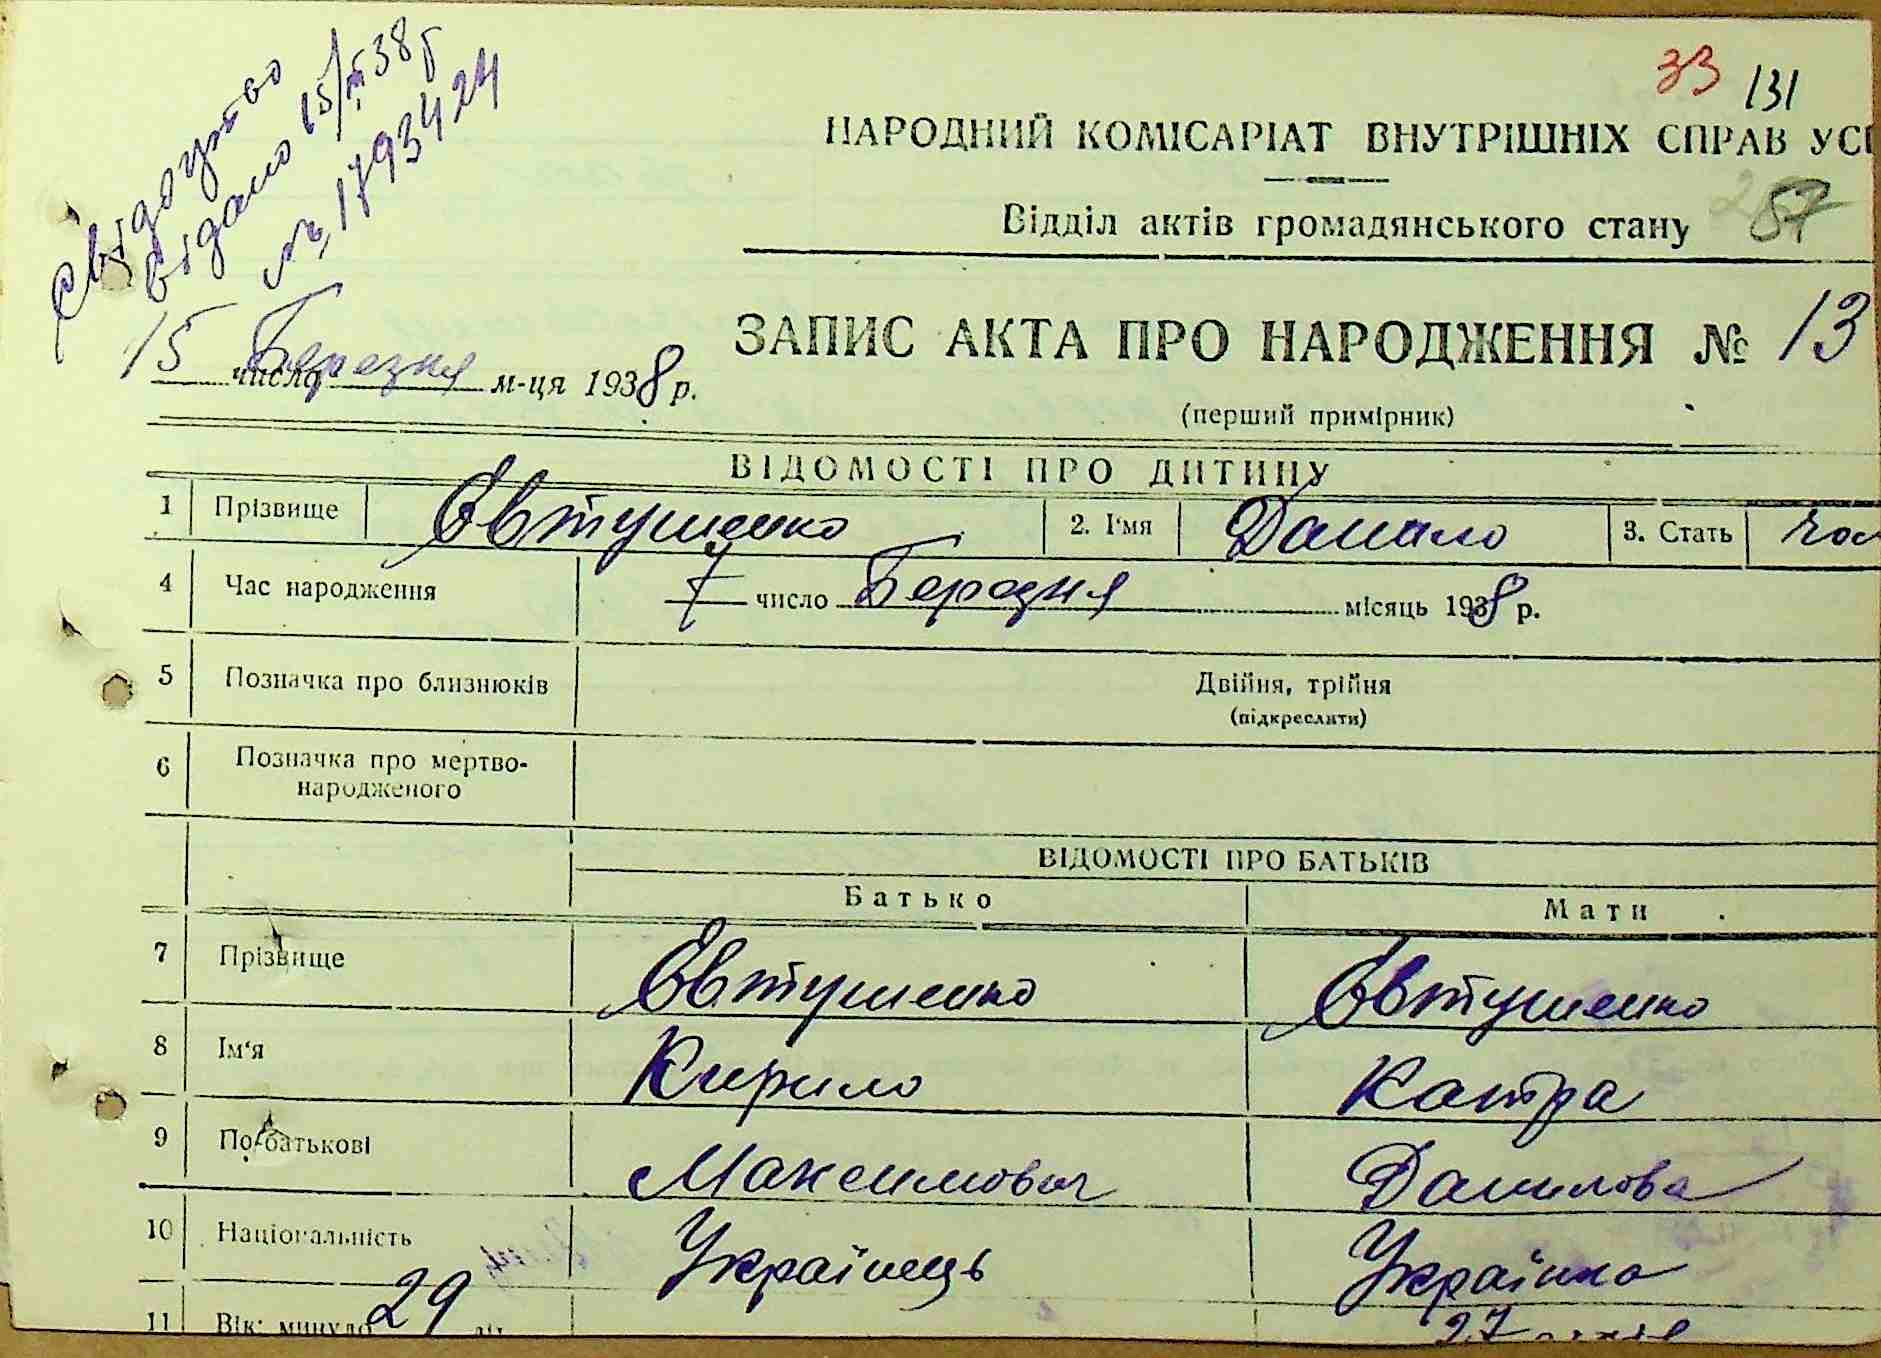 Свідоцтво
видано 15/III 38 р
№ 1793424
33 131
НАРОДНИЙ КОМІСАРІАТ ВНУТРІШНІХ СПРАВ УС
Відділ актів громадянського стану 57
ЗАПИС АКТА ПРО НАРОДЖЕННЯ № 13
15 число Березня м-ця 1938 р.
(перший примірник)
ВІДОМОСТІ ПРО ДИТИНУ
1 Прізвище Євтушенко 2. І'мя Данило 3. Стать чол
4 Час народження 7 число Березня місяць 1938 р.
5 Позначка про близнюків Двійня, трійня
(підкреслити)
6 Позначка про мертво-
народженого
ВІДОМОСТІ ПРО БАТЬКІВ
Батько Мати
7 Прізвище Євтушенко Євтушенко
8 Ім'я Кирило Катря
9 По-батькові Максимович Данилова
10 Національність Українець Українка
11 Вік: минуло 29 літ 27 літ